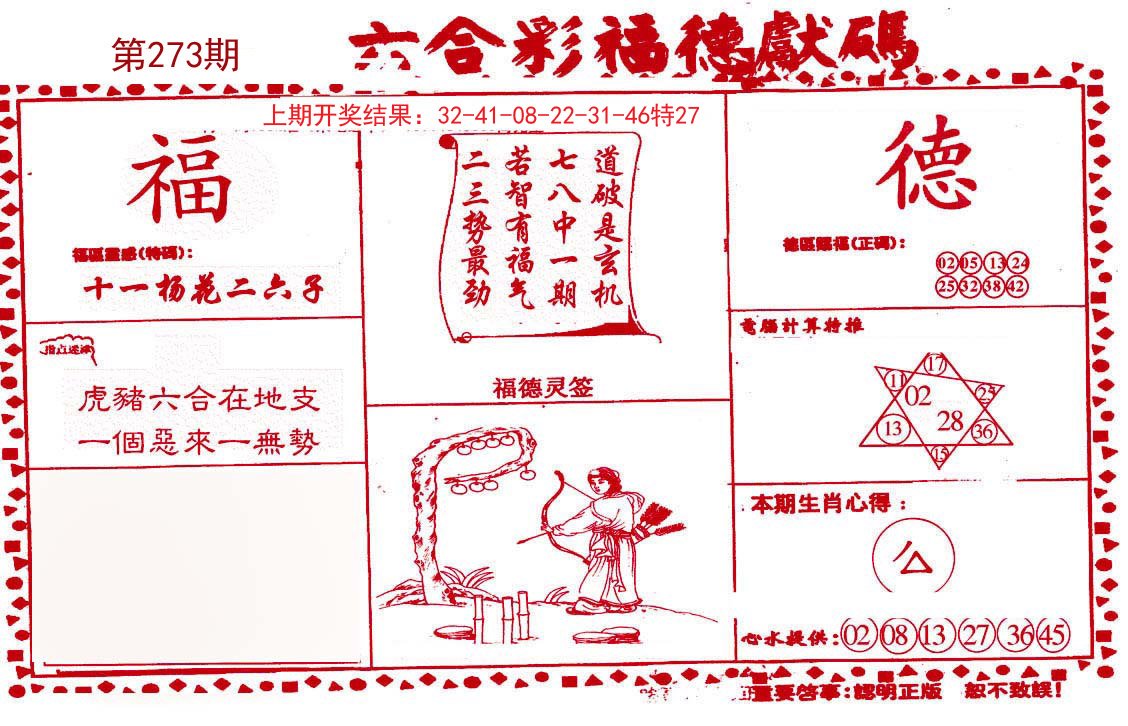 第273期
六合彩福德獻碼
上期开奖结果：32-41-08-22-31-46特27
福
福區靈感(特碼)：
十一杨花二六子
指点迷津
虎豬六合在地支
一個惡來一無勢
道破是玄机
七八中一期
若智有福气
二三势最劲
福德灵签
德
德區賜福(正碼)：
02 05 13 24
25 32 38 42
電腦計算特推
17
11 02 25
13 28 36
15
本期生肖心得：
心水提供：02 08 13 27 36 45
重要啓事：認明正版 恕不致誤！